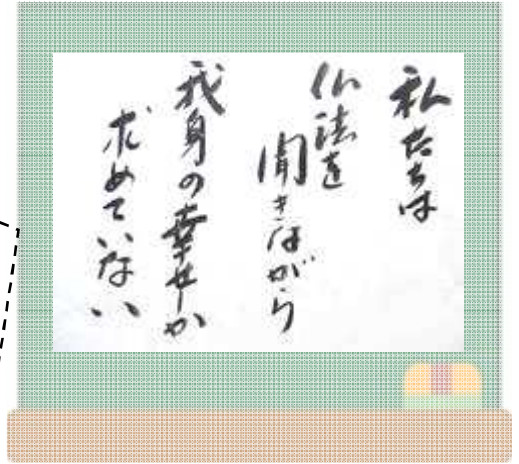 私たちは
仏法を
聞きながら
我身の幸せか
求めていない